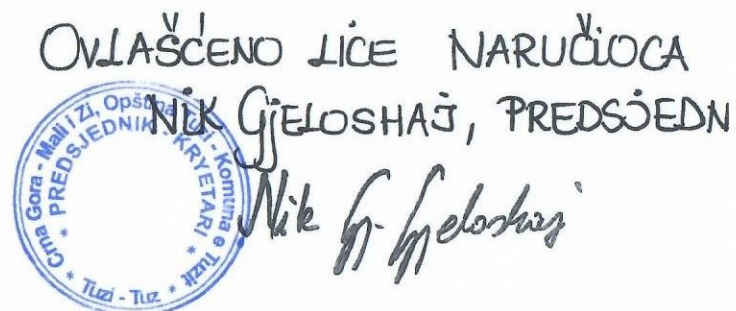 OVLAŠĆENO LICE NARUČIOCA
NIK GJELOSHAJ, PREDSJEDN
Nik Gj. Gjeloshaj
Crna Gora - Mali i Zi, Opština Tuzi - Komuna e Tuzit
* PREDSJEDNIK - KRYETARI *
* Tuzi - Tuz *